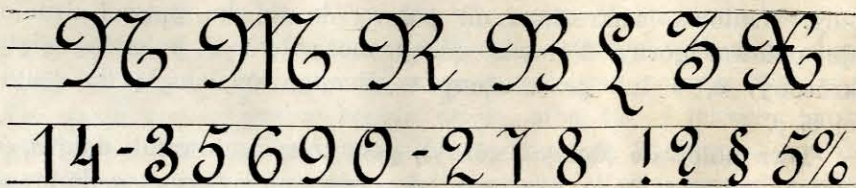 N M R B L Z X
14-35690-278 !? § 5%